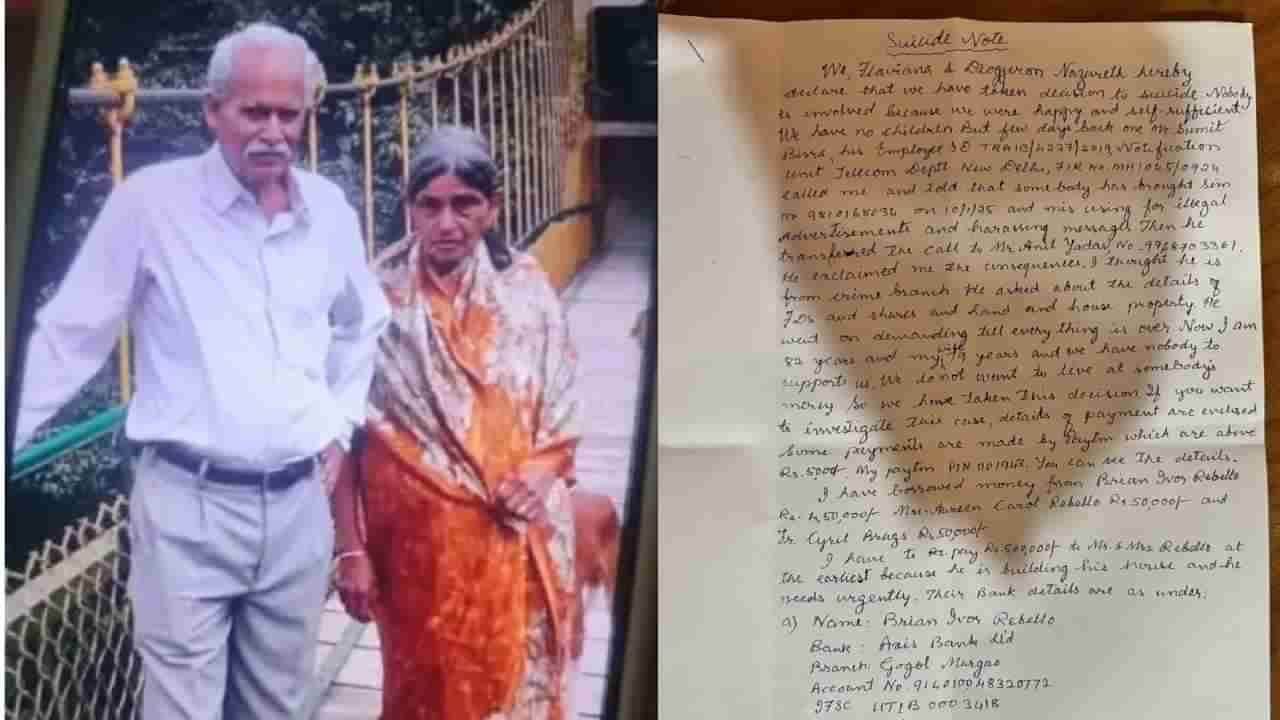 Suicide Note
We, Flaviana & Nazareth hereby
declare that we have taken decision to suicide. Nobody
is involved because we were happy and self-sufficient
We have no children But few days back one Mr Sumit
Birra, his Employee ID Notification
unit Telecom Deptt New Delhi, FIR No.
called me and told that somebody has brought sim
no on 10/1/25 and mis using for illegal
Advertisements and harassing messages. Then he
transferred the call to Mr. Anil Yadav, No.
He exclaimed me the consequences. I thought he is
from crime branch. He asked about the details of
FDs and shares and land and house property. He
went on demanding till every thing is over Now I am
82 years and my wife 79 years and we have nobody to
supports us. We do not want to live at somebody's
money So we have taken This decision If you want
to investigate This case, details of payment are enclosed
Some payments are made by Paytm which are above
My paytm PIN You can see The details.
I have borrowed money from Brian Ivor Rebello
Rs. 4,50,000/- Carol Rebello Rs 50,000/- and
Fr. Cyril Rs 50,000/-
I have to pay Rs. 500,000/- to Mr. & Mrs Rebello at
the earliest because he is building his house and he
needs urgently. Their Bank details are as under:
a) Name: Brian Ivor Rebello
Bank: Axis Bank Ltd
Branch: Gogol Margao
Account No.
IFSC UTIB 0003418